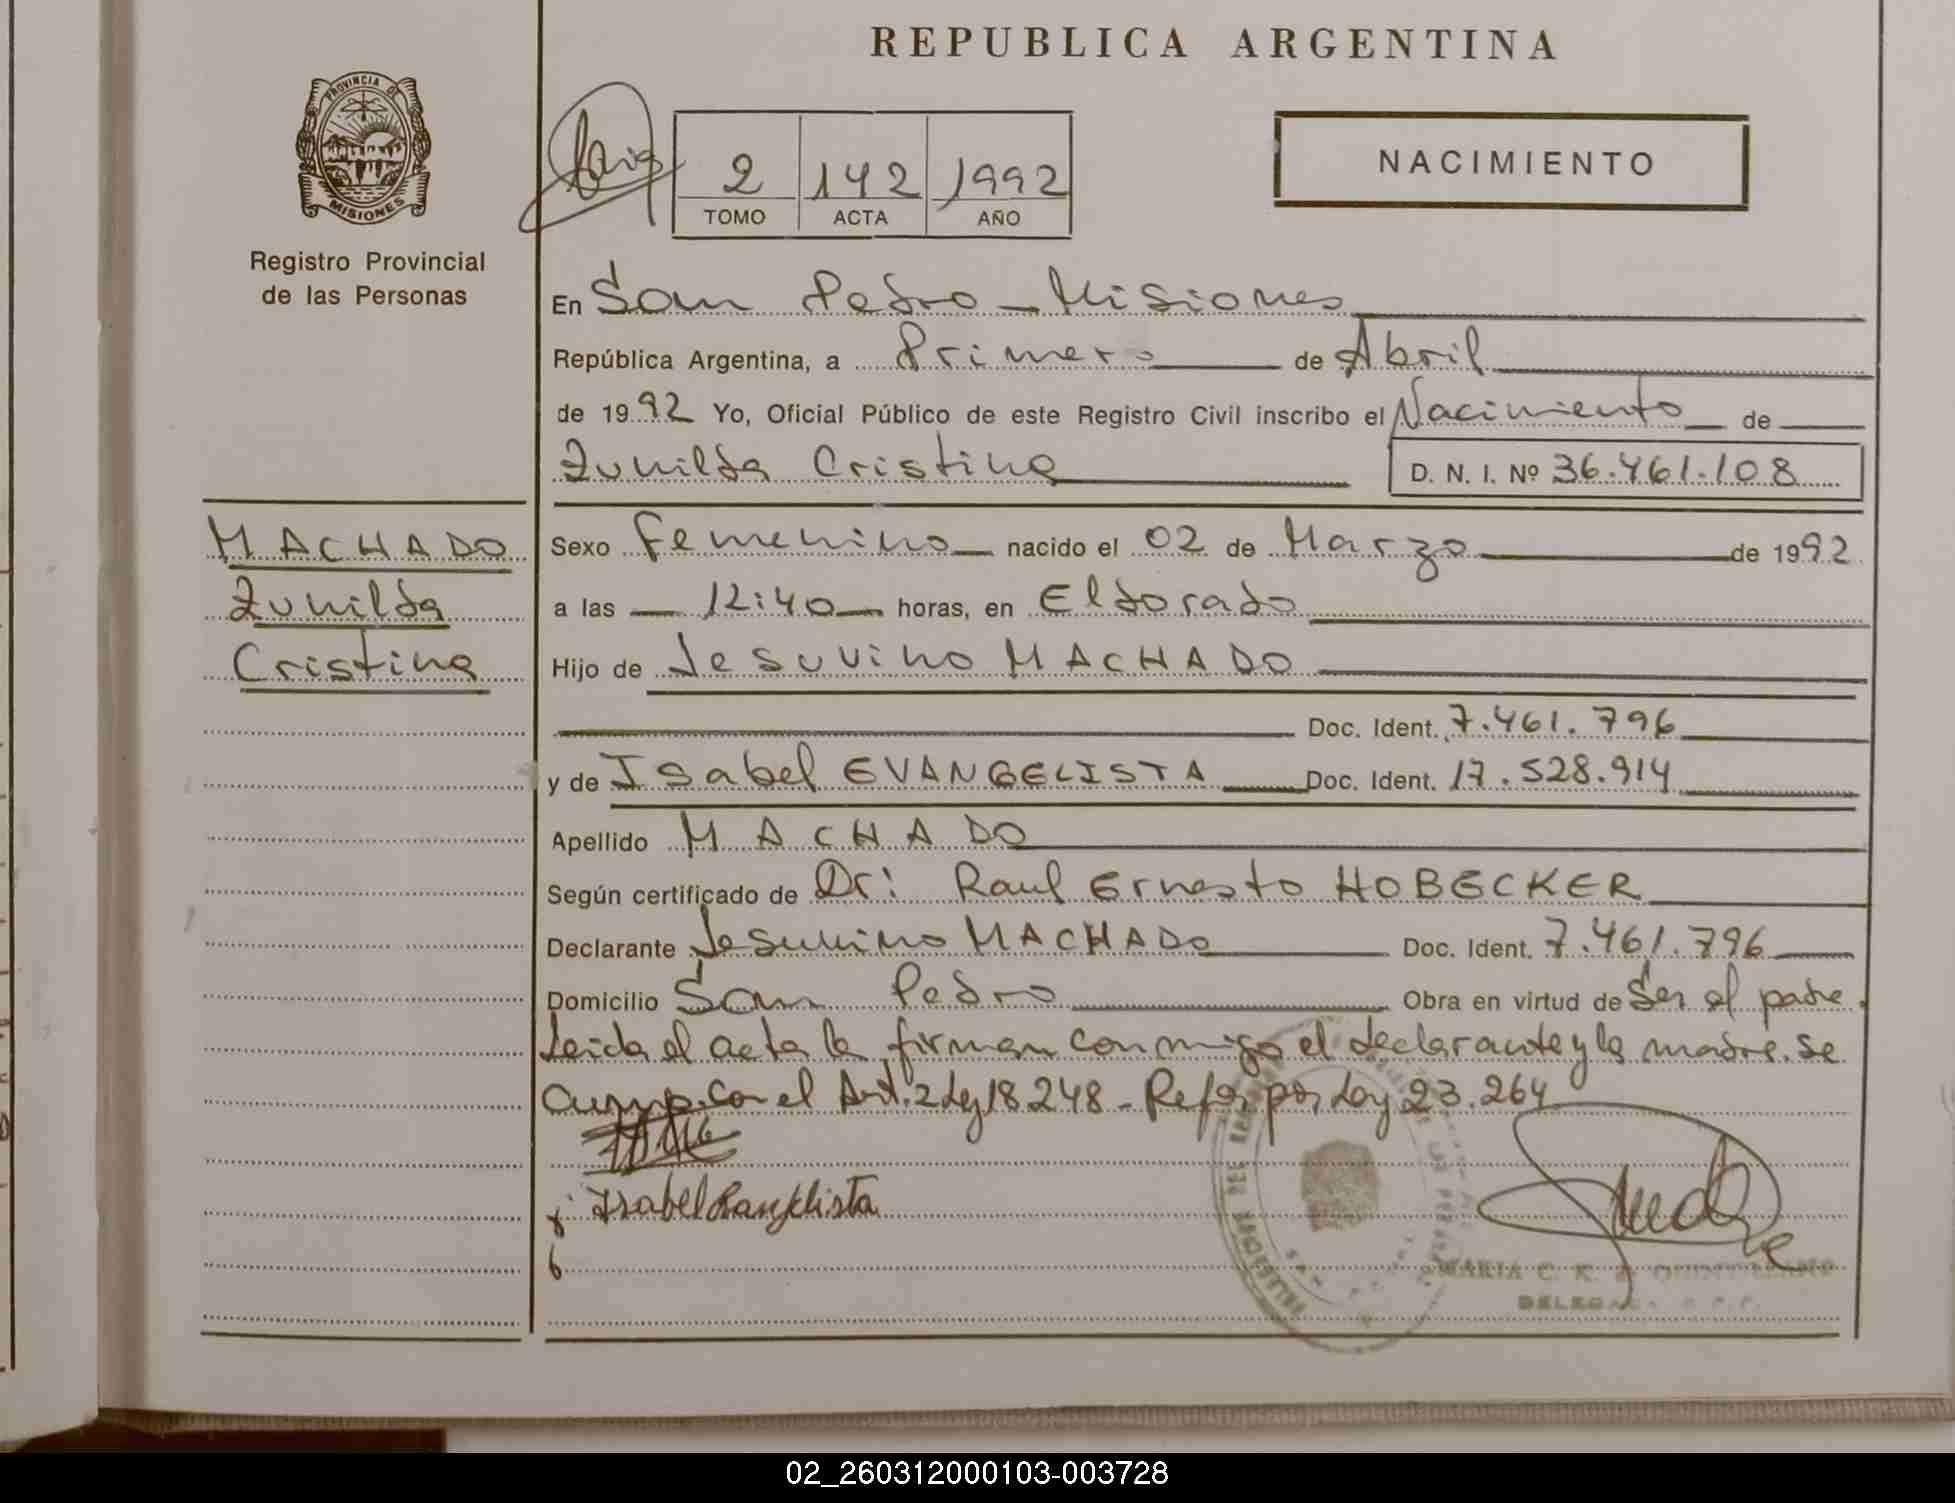 REPUBLICA ARGENTINA
PROVINCIA DE
MISIONES
Registro Provincial
de las Personas
2 142 1992
TOMO ACTA AÑO
NACIMIENTO
En San Pedro - Misiones
República Argentina, a Primero de Abril
de 1992 Yo, Oficial Público de este Registro Civil inscribo el Nacimiento de
Zunilda Cristina D. N. I. Nº 36.461.108
MACHADO
Zunilda
Cristina
Sexo Femenino nacido el 02 de Marzo de 1992
a las 12:40 horas, en Eldorado
Hijo de Jesuvino MACHADO
Doc. Ident. 7.461.796
y de Isabel EVANGELISTA Doc. Ident. 17.528.914
Apellido MACHADO
Según certificado de Dr: Raul Ernesto HOBECKER
Declarante Jesuvino MACHADO Doc. Ident. 7.461.796
Domicilio San Pedro Obra en virtud de Ser el padre.
Leida el acta la firman conmigo el declarante y la madre. se
cump. con el Art. 2 Ley 18248 - Refor por Ley 23.264
Isabel
MARIA C. K. de
02_260312000103-003728